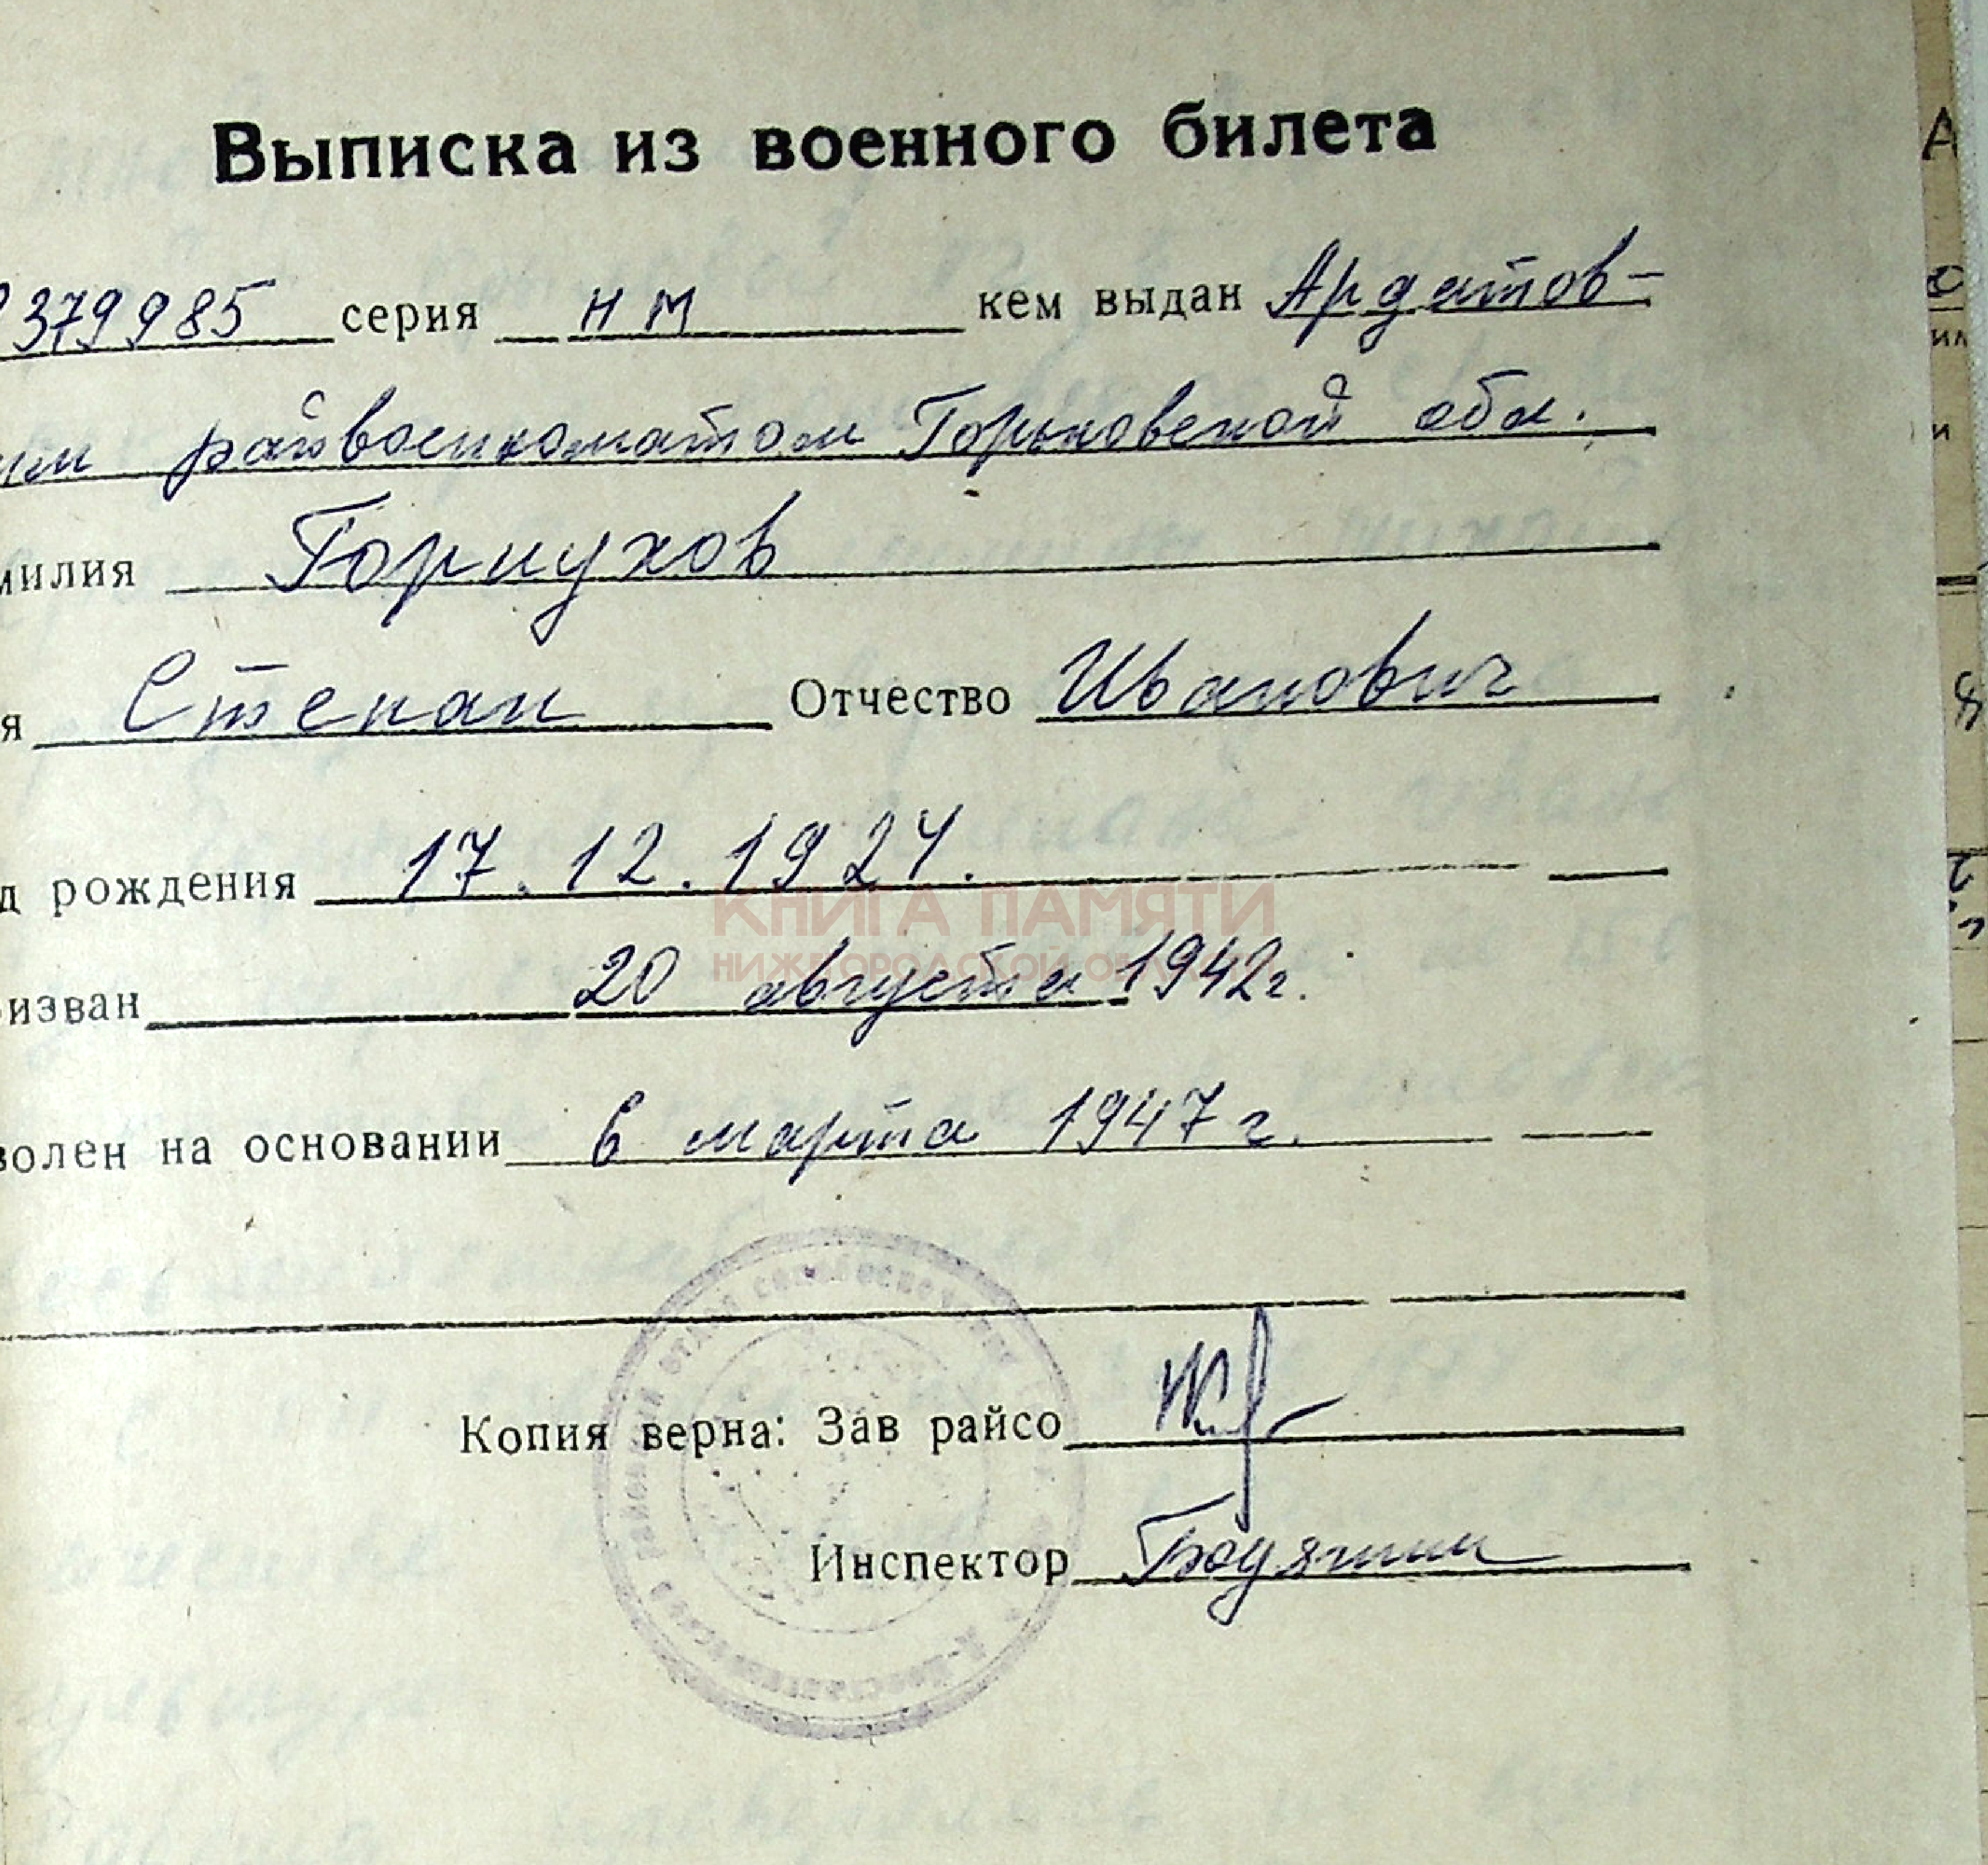 Выписка из военного билета
379985 серия НМ кем выдан Ардатов-
им райвоенкоматом Горьковской обл.
милия Горнухов
я Степан Отчество Иванович
д рождения 17.12.1924.
КНИГА ПАМЯТИ
НИЖЕГОРОДСКОЙ ОБЛ
изван 20 августа 1942г.
волен на основании 6 марта 1947 г.
Копия верна: Зав райсо
Инспектор